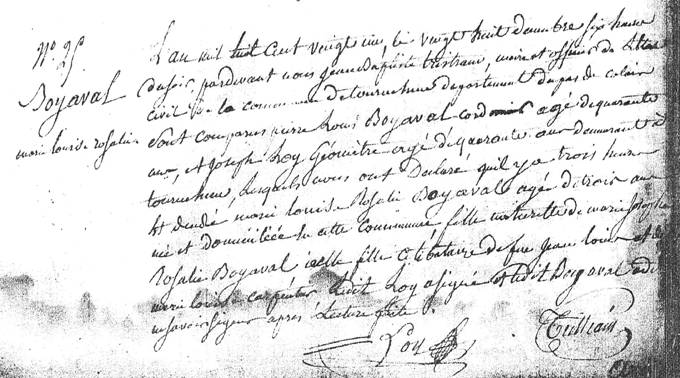 N° 25
Boyaval
marie louise rosalie
L'an mil huit Cent vingt un, le vingt huit Decembre six heure
du soir, pardevant nous jean Baptiste tristram, maire et officier de l'état
civil de la commune De tournehem departement du pas de calais
Sont comparus pierre Boyaval Cordonier agé de quarante
ans, et Joseph Roy Géomètre agé de quarante ans demeurant à
tournehem, lesquels nous ont declaré qu'il y a trois heure
Est dendée marie Louise Rosalie Boyaval agé de trois ans
né et domiciléée en cette Commune fille naturelle de marie josephe
Rosalie Boyaval icelle fille célibataire de feu jean louis et de
marie louise carpentier ledit Roy a signé et ledit Boyaval a dit
ne savoir signer apres Lecture faite.
Roy